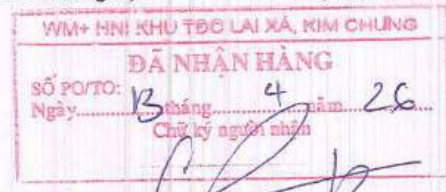 WM+ HNI KHU TĐC LAI XÁ, KIM CHUNG
ĐÃ NHẬN HÀNG
SỐ PO/TO:
Ngày 13 tháng 4 năm 26
Chữ ký người nhận